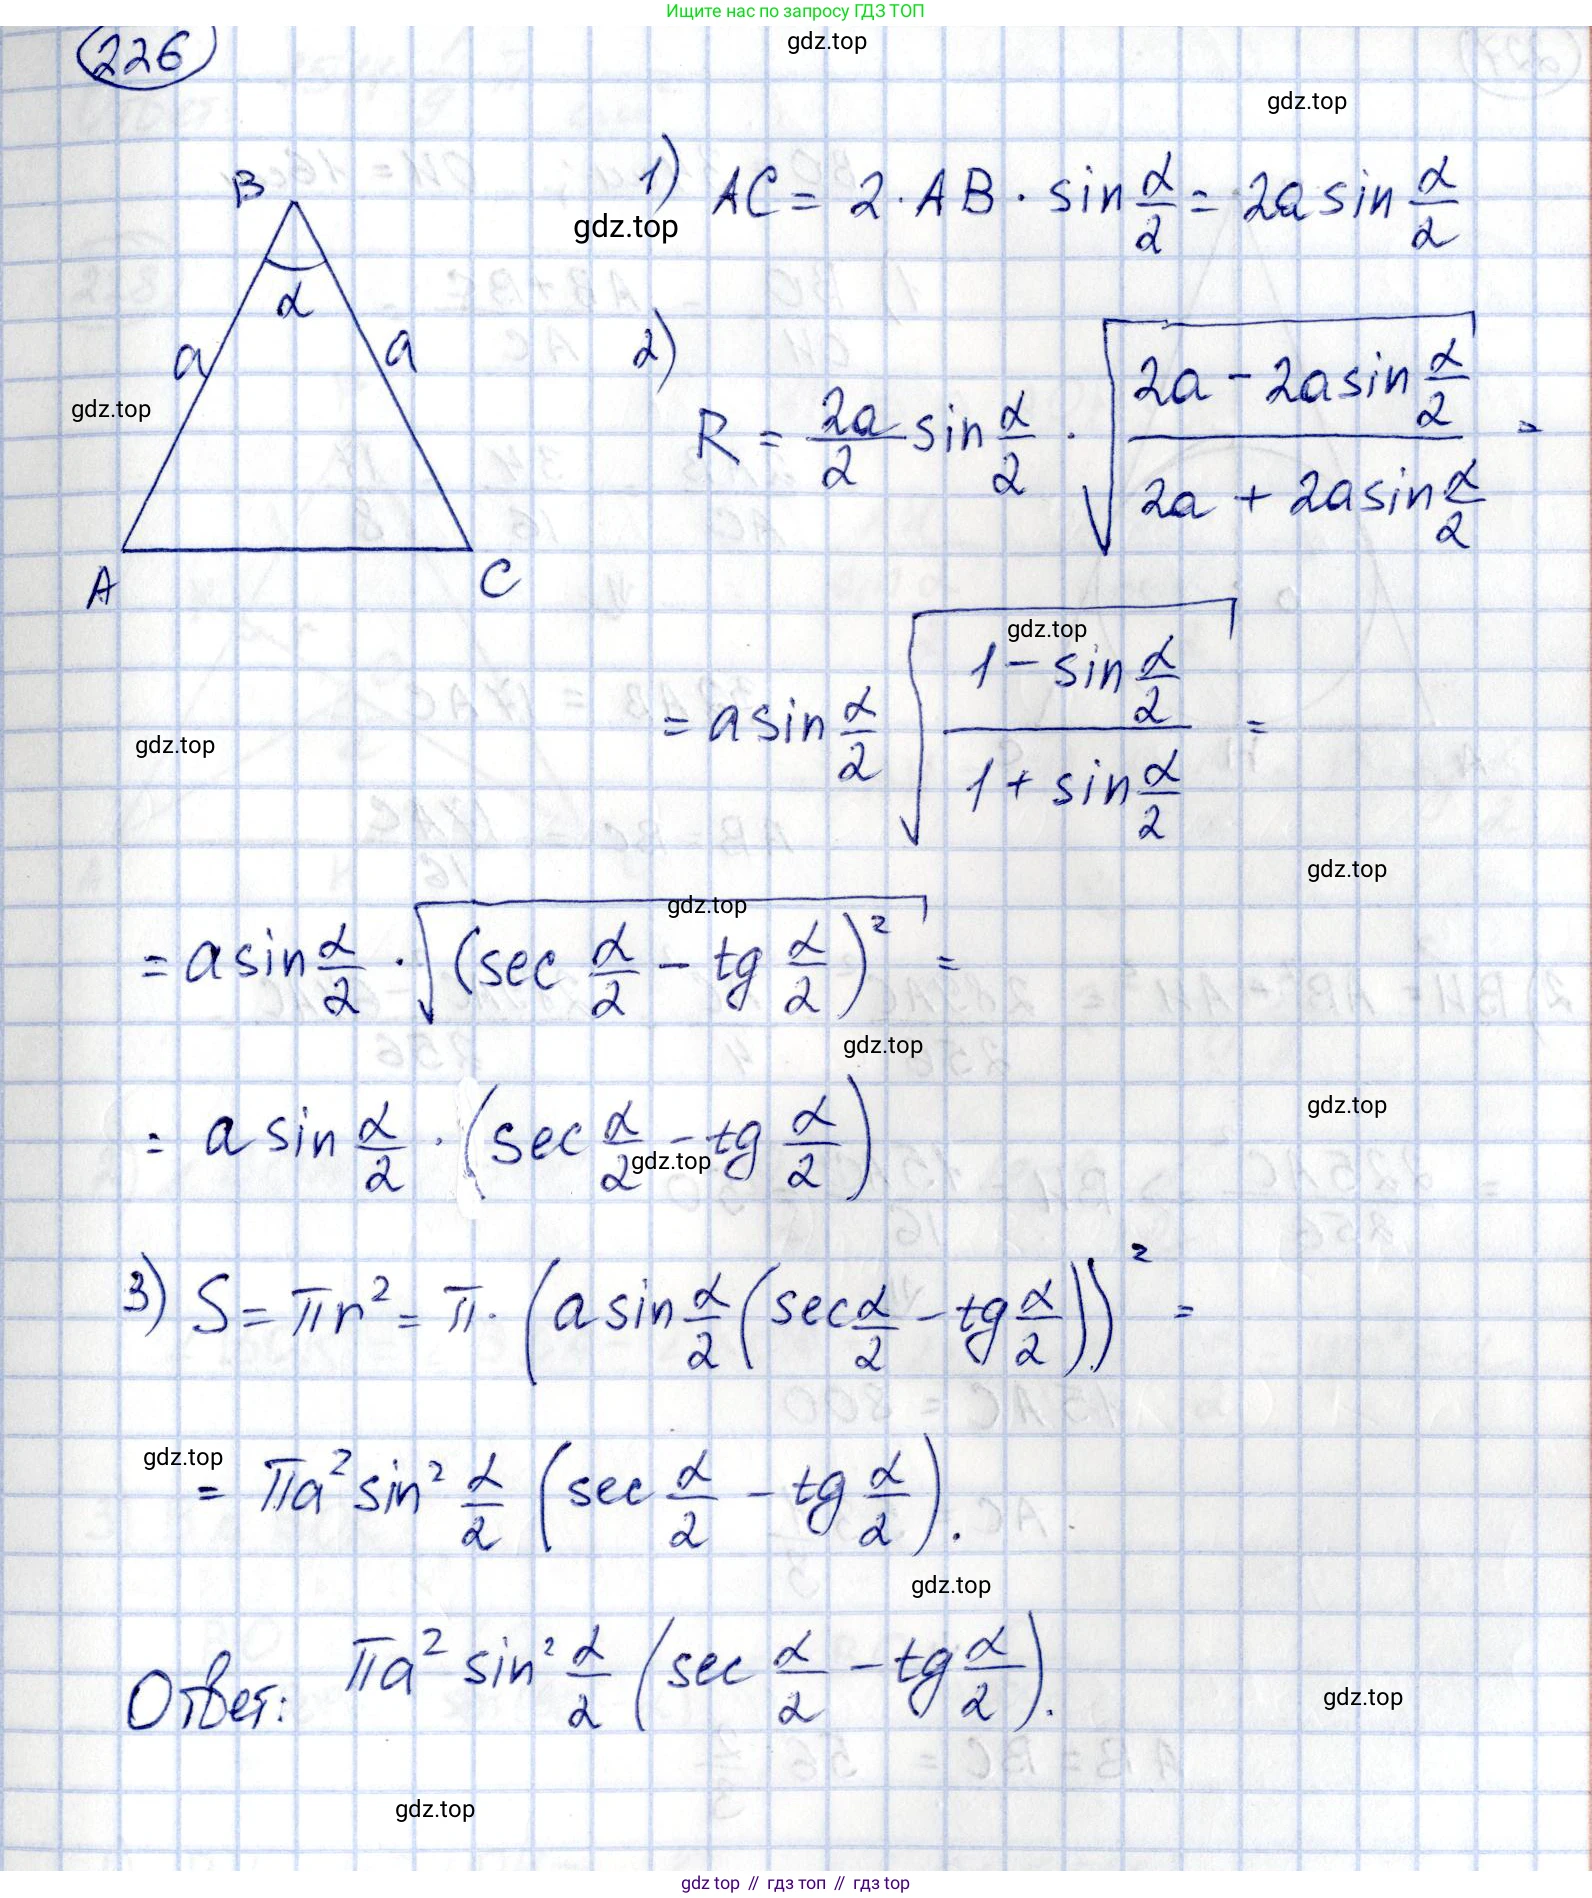 Ищите нас по запросу ГДЗ ТОП
226
gdz.top
gdz.top
B
α
a a
A C
1) AC = 2 · AB · sin α/2 = 2a sin α/2
gdz.top
2)
R = 2a/2 sin α/2 · √((2a - 2a sin α/2)/(2a + 2a sin α/2)) =
gdz.top
gdz.top
= a sin α/2 √((1 - sin α/2)/(1 + sin α/2)) =
gdz.top
gdz.top
gdz.top
= a sin α/2 · √((sec α/2 - tg α/2)²) =
gdz.top
gdz.top
= a sin α/2 · (sec α/2 - tg α/2)
gdz.top
3) S = πr² = π · (a sin α/2 (sec α/2 - tg α/2))² =
gdz.top
= πa² sin² α/2 (sec α/2 - tg α/2).
gdz.top
Ответ: πa² sin² α/2 (sec α/2 - tg α/2).
gdz.top
gdz.top
gdz top // гдз топ // гдз top